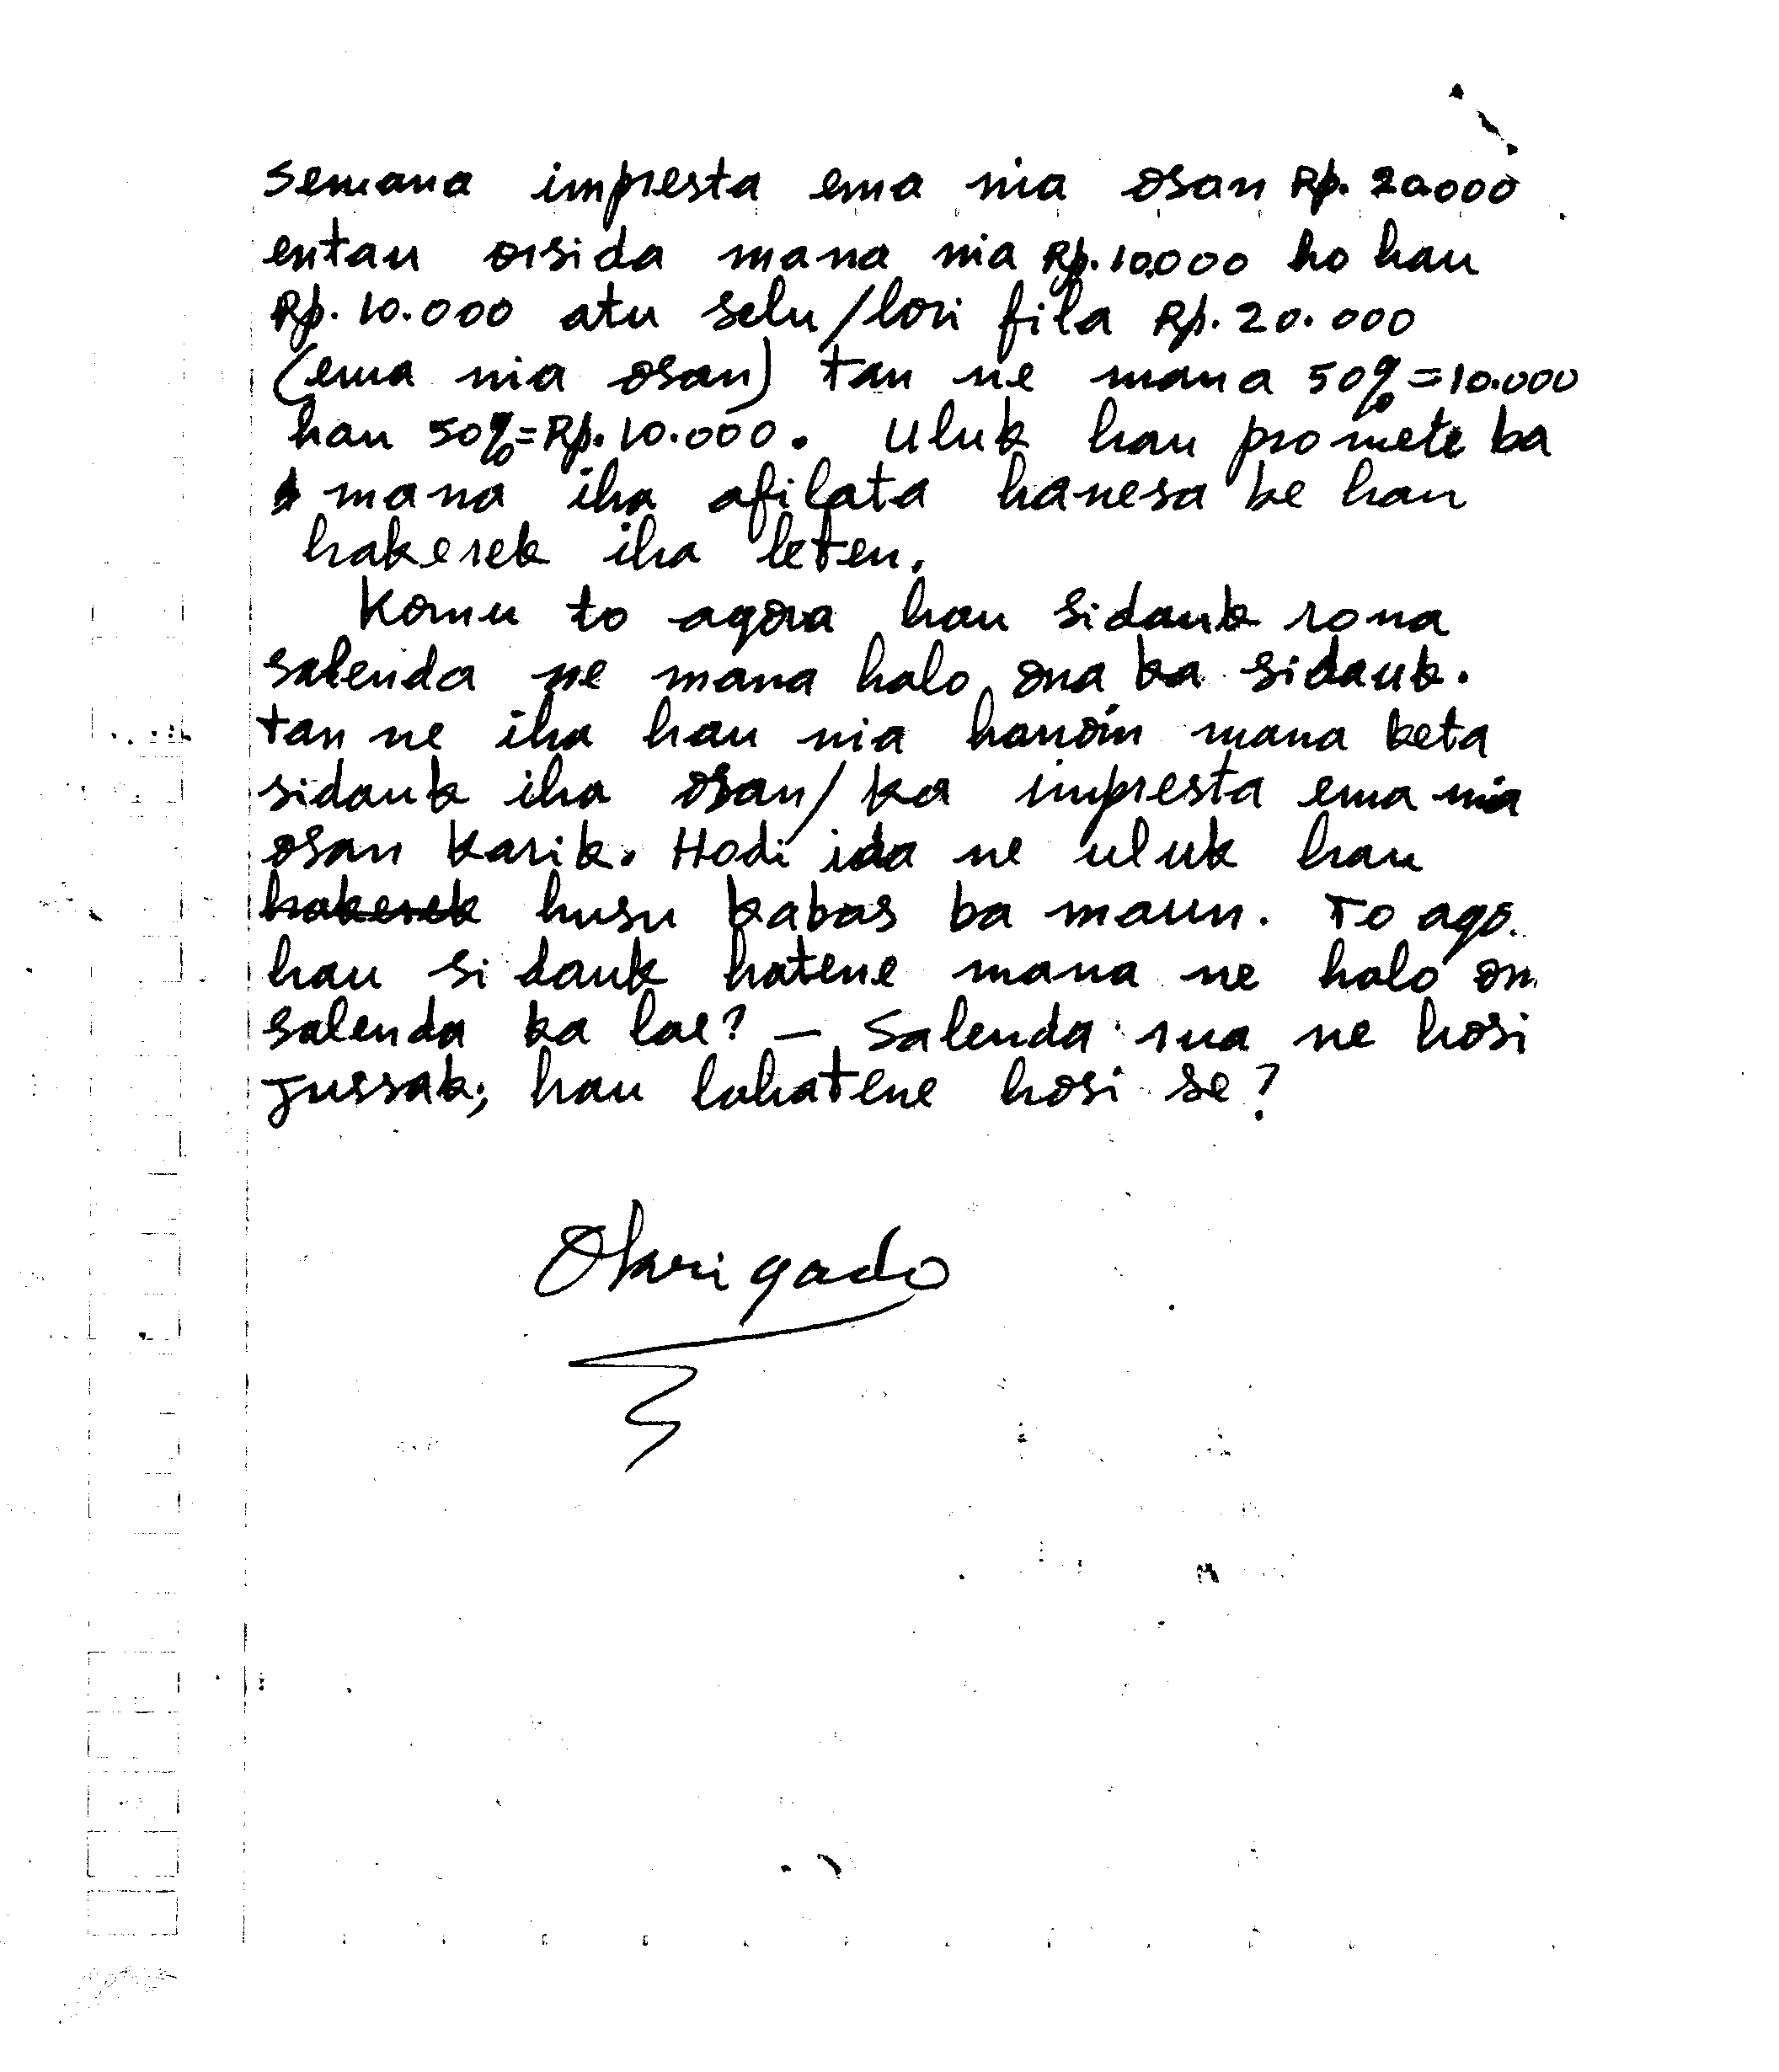 semana impresta ema nia osan Rp. 20.000
entau orsida mana nia Rp. 10.000 ho hau
Rp. 10.000 atu selu/lori fila Rp. 20.000
(ema nia osan) tan ne mana 50% = 10.000
hau 50% = Rp. 10.000. Uluk hau promete ba
mana iha afilata hanesa ke hau
hakerek iha leten.
Komu to agora hau sidauk rona
salenda ne mana halo ona ka sidauk.
tan ne iha hau nia hanoin mana keta
sidauk iha osan/ka impresta ema nia
osan karik. Hodi ida ne uluk hau
hakerek husu kabas ba maun. To ago.
hau sidauk hatene mana ne halo on
salenda ka lae? — Salenda rua ne hosi
Jussak; hau lahatene hosi se?
Obrigado